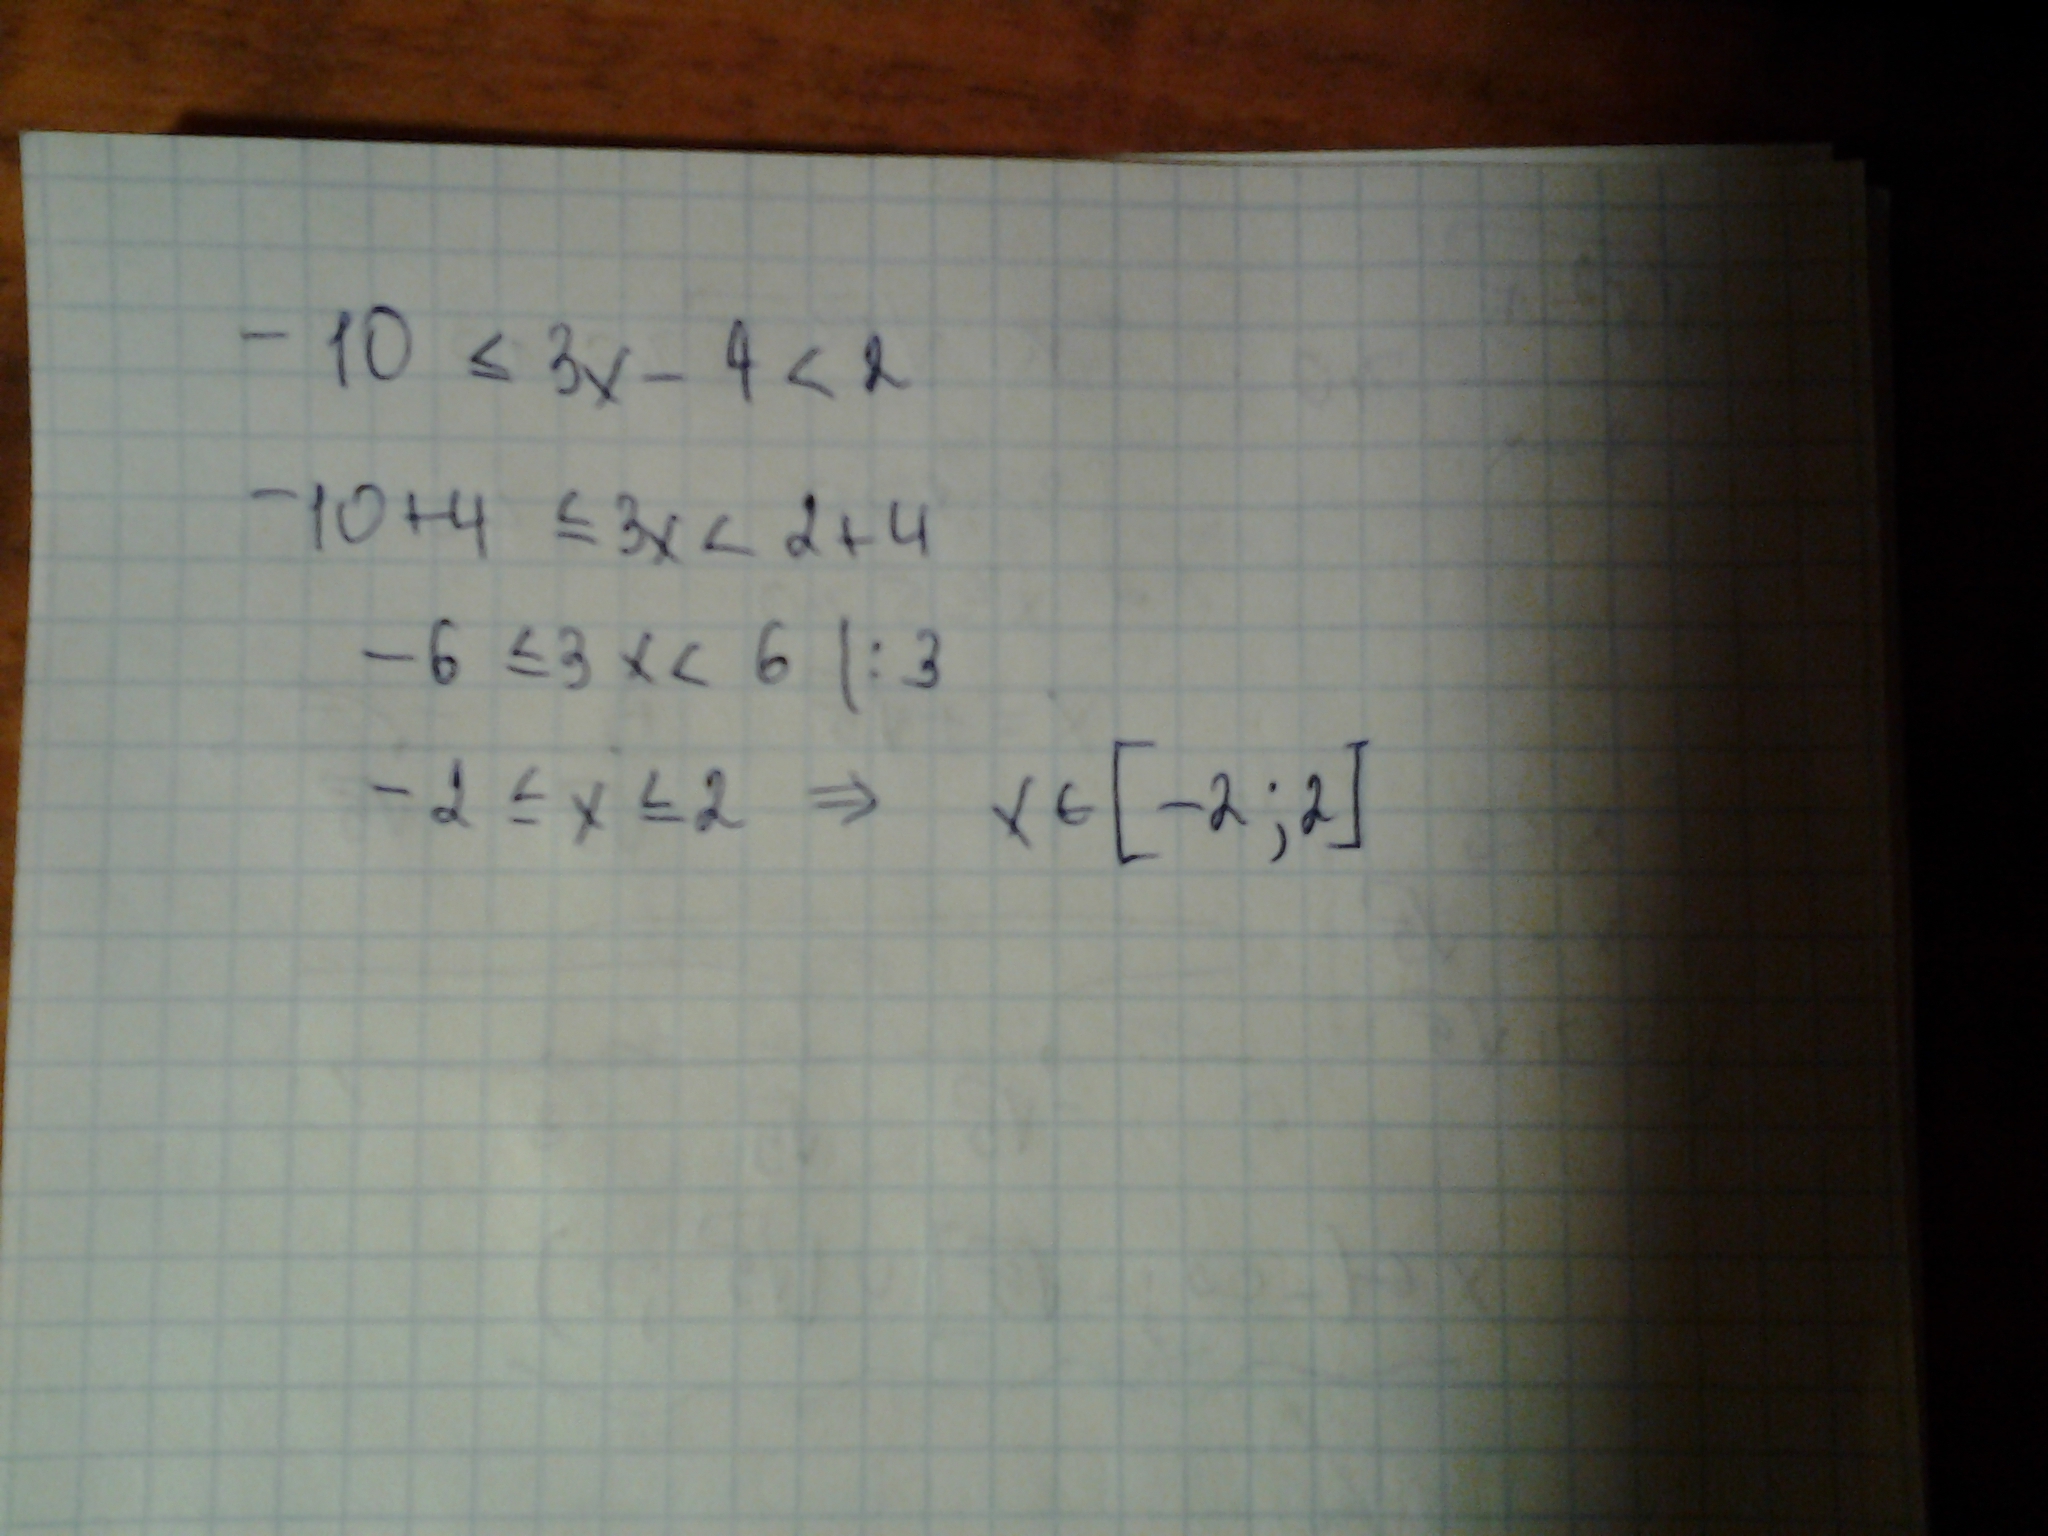 -10 ≤ 3x - 4 < 2
-10+4 ≤ 3x < 2+4
-6 ≤ 3x < 6 |: 3
-2 ≤ x ≤ 2 ⇒ x ∈ [-2; 2]